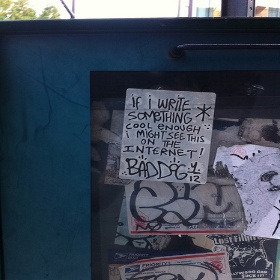 IF i WRiTE
SOMETHiNG
COOL ENOUGH
i MiGHT SEE THiS
ON THE
iNTERNET!
BADDOG 1
12
LOST
PRIORITY